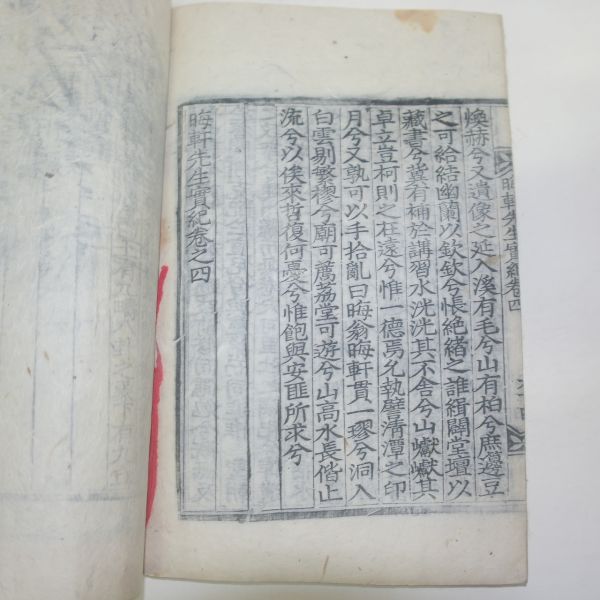 煥赫兮又遺像之延入溪有毛兮山有柏兮庶籩豆
之可給結幽蘭以欽欽兮悵絶緖之誰緝闢堂壇以
藏書兮冀有補於講習水洸洸其不舍兮山巘巘其
卓立豈柯則之在遠兮惟一德焉允執譬淸潭之印
月兮又孰可以手拾亂曰晦翁晦軒貫一璆兮洞入
白雲剔繁樛兮廟可薦荔堂可遊兮山高水長偕止
流兮以俟來哲復何憂兮惟飽與安匪所求兮
晦軒先生實紀卷之四
晦軒先生實紀卷四